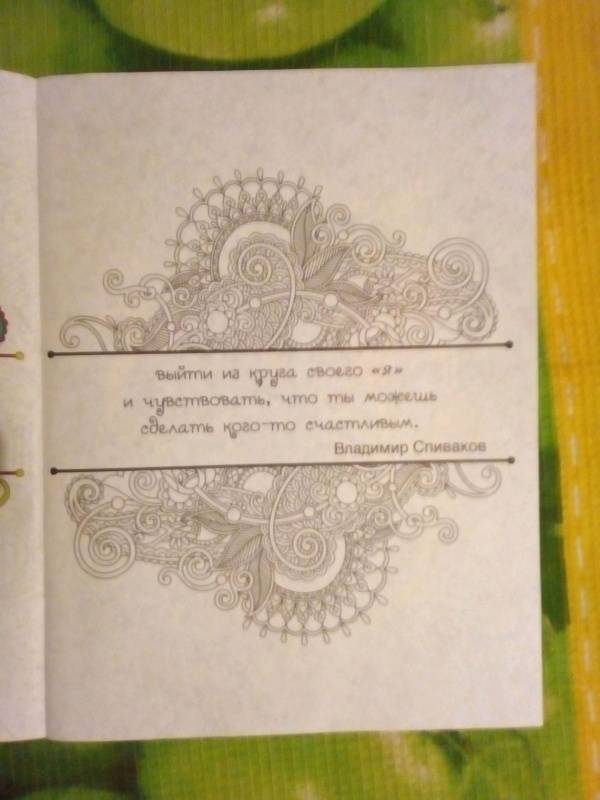 выйти из круга своего «я»
и чувствовать, что ты можешь
сделать кого-то счастливым.
Владимир Спиваков